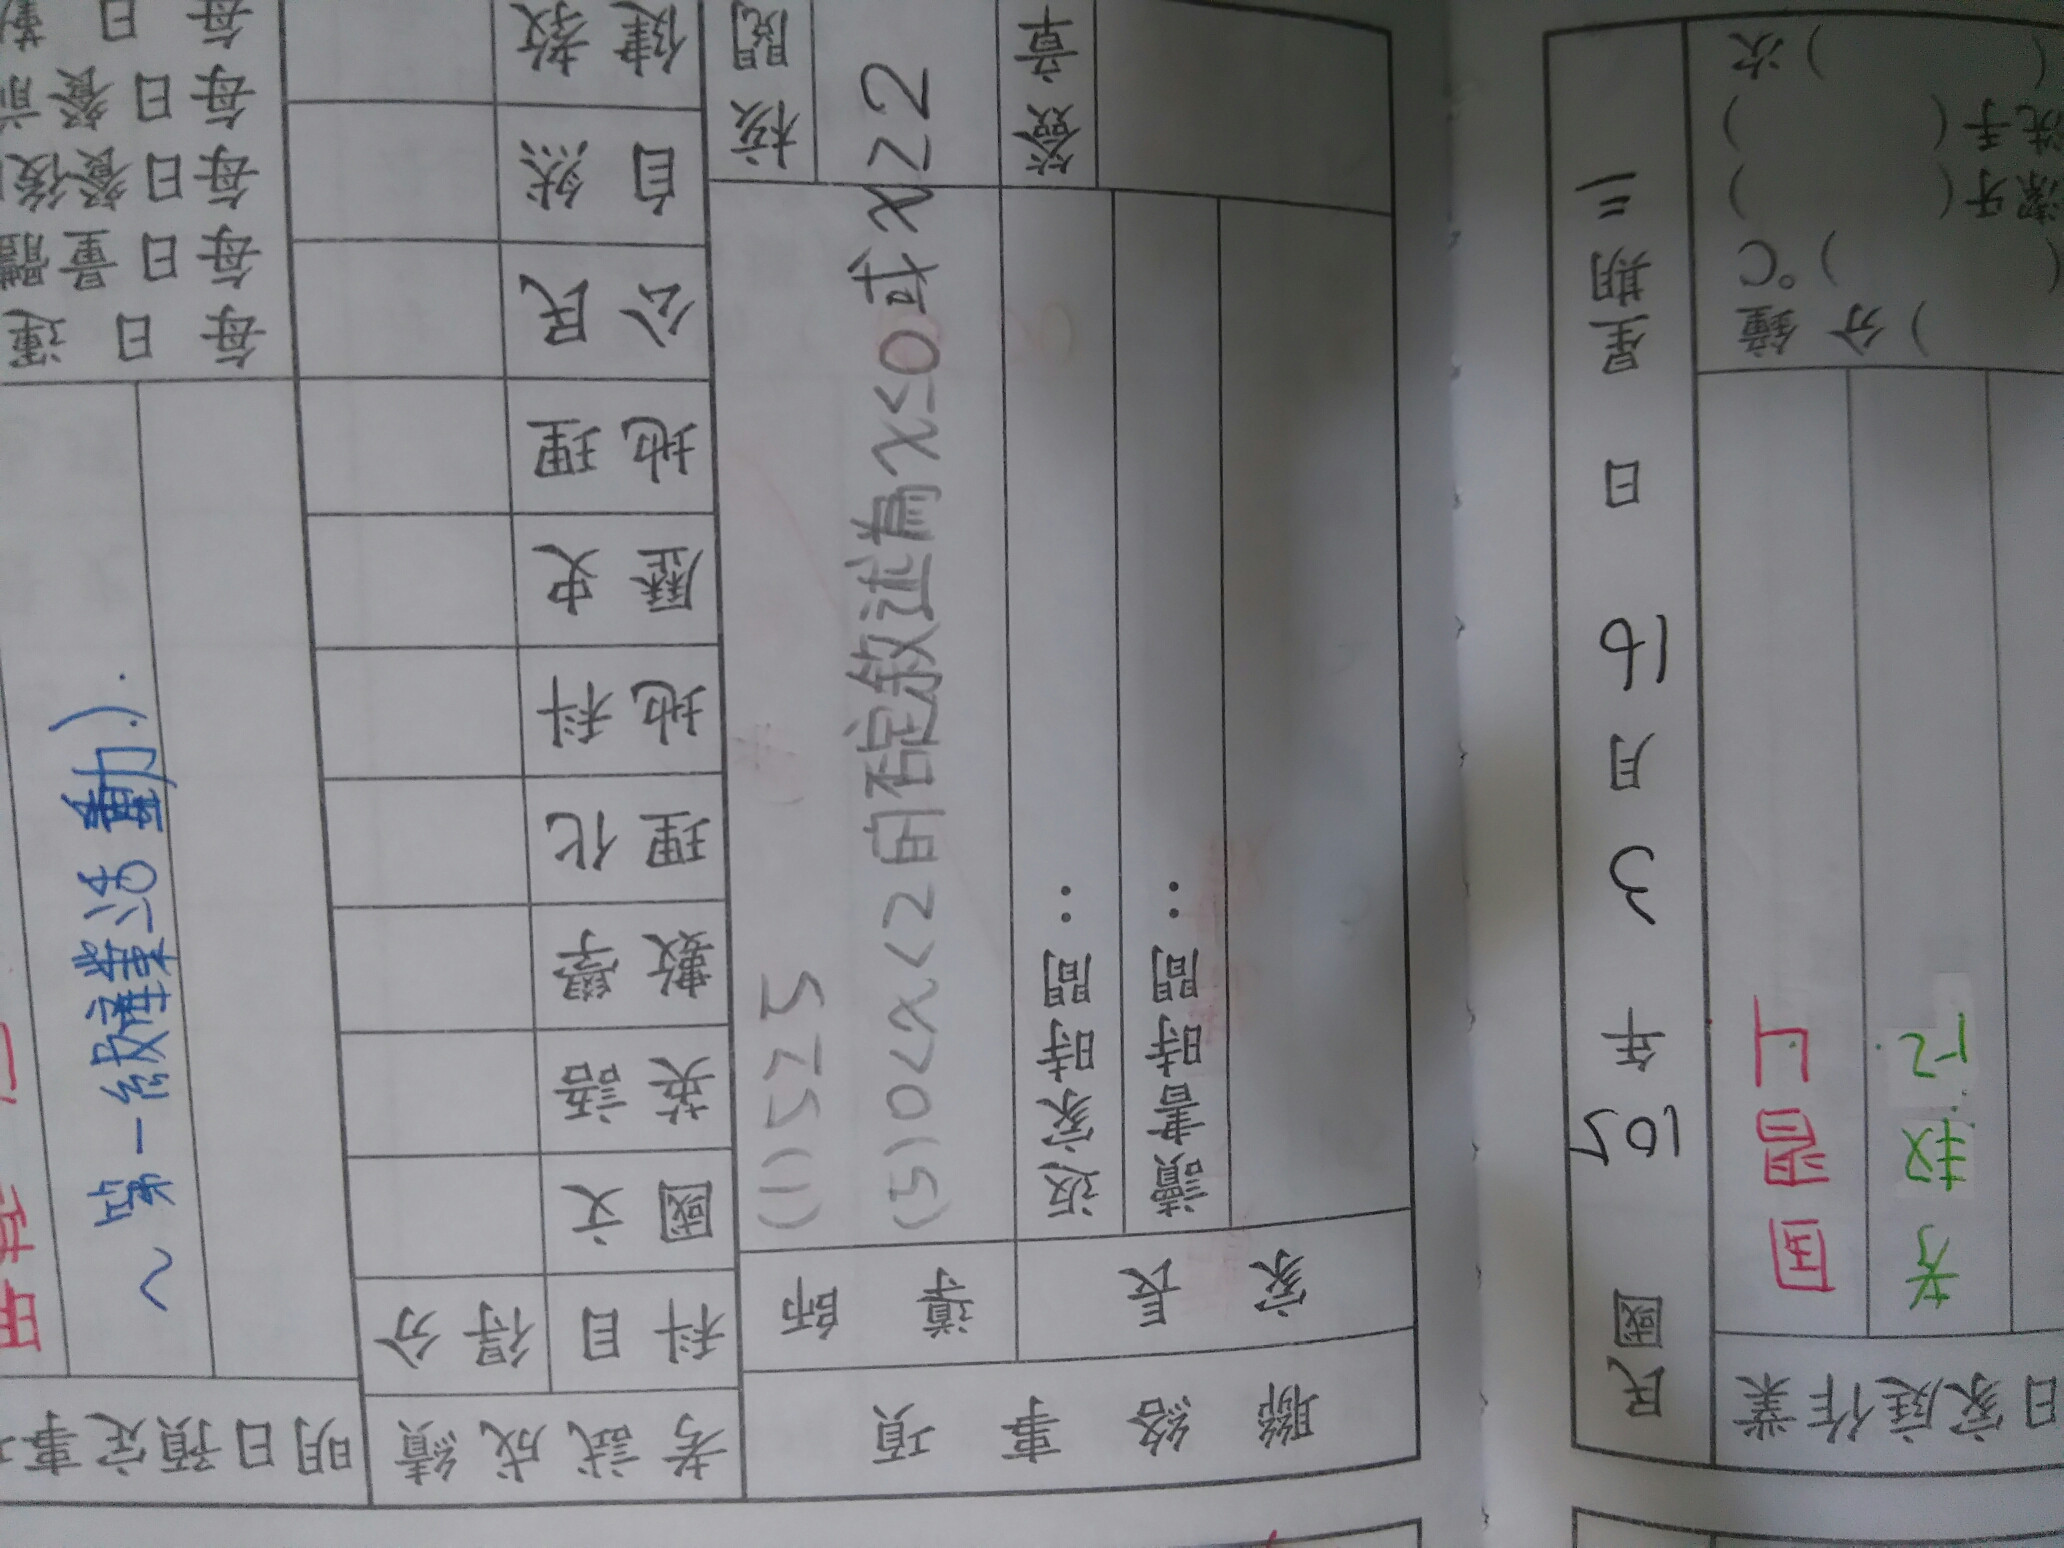 明日預定事
～第一級離業活動).
每日運
每日量體
每日餐後
每日餐前
每日
考試成績
科目 國文 英語 數學 理化 地科 歷史 地理 公民 自然 健教
得分
聯絡事項
導師
(1)525
(5)0<x<2的否定敘述為x≤0或x≥2
核閱
家長
返家時間：
讀書時間：
簽章
民國 105 年 3 月 16 日 星期三
日家庭作業
国習上
)分鐘
)℃
潔牙( )
洗手( )
)次